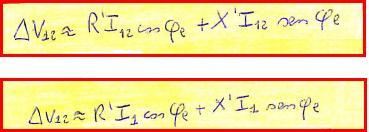 ΔV₁₂ ≈ R'I₁₂ cos φₑ + X'I₁₂ sen φₑ
ΔV₁₂ ≈ R'I₁ cos φₑ + X'I₁ sen φₑ